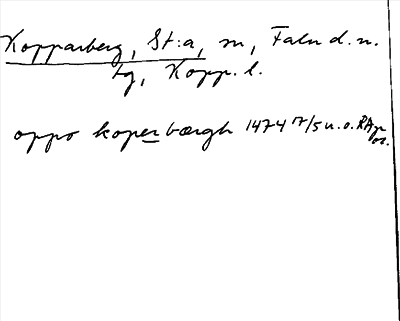 Kopparberg, St:a, m, Falu d.n.
tg, Kopp. l.
oppo koperbærgh 1474 17/5 u.o. RAp
or.